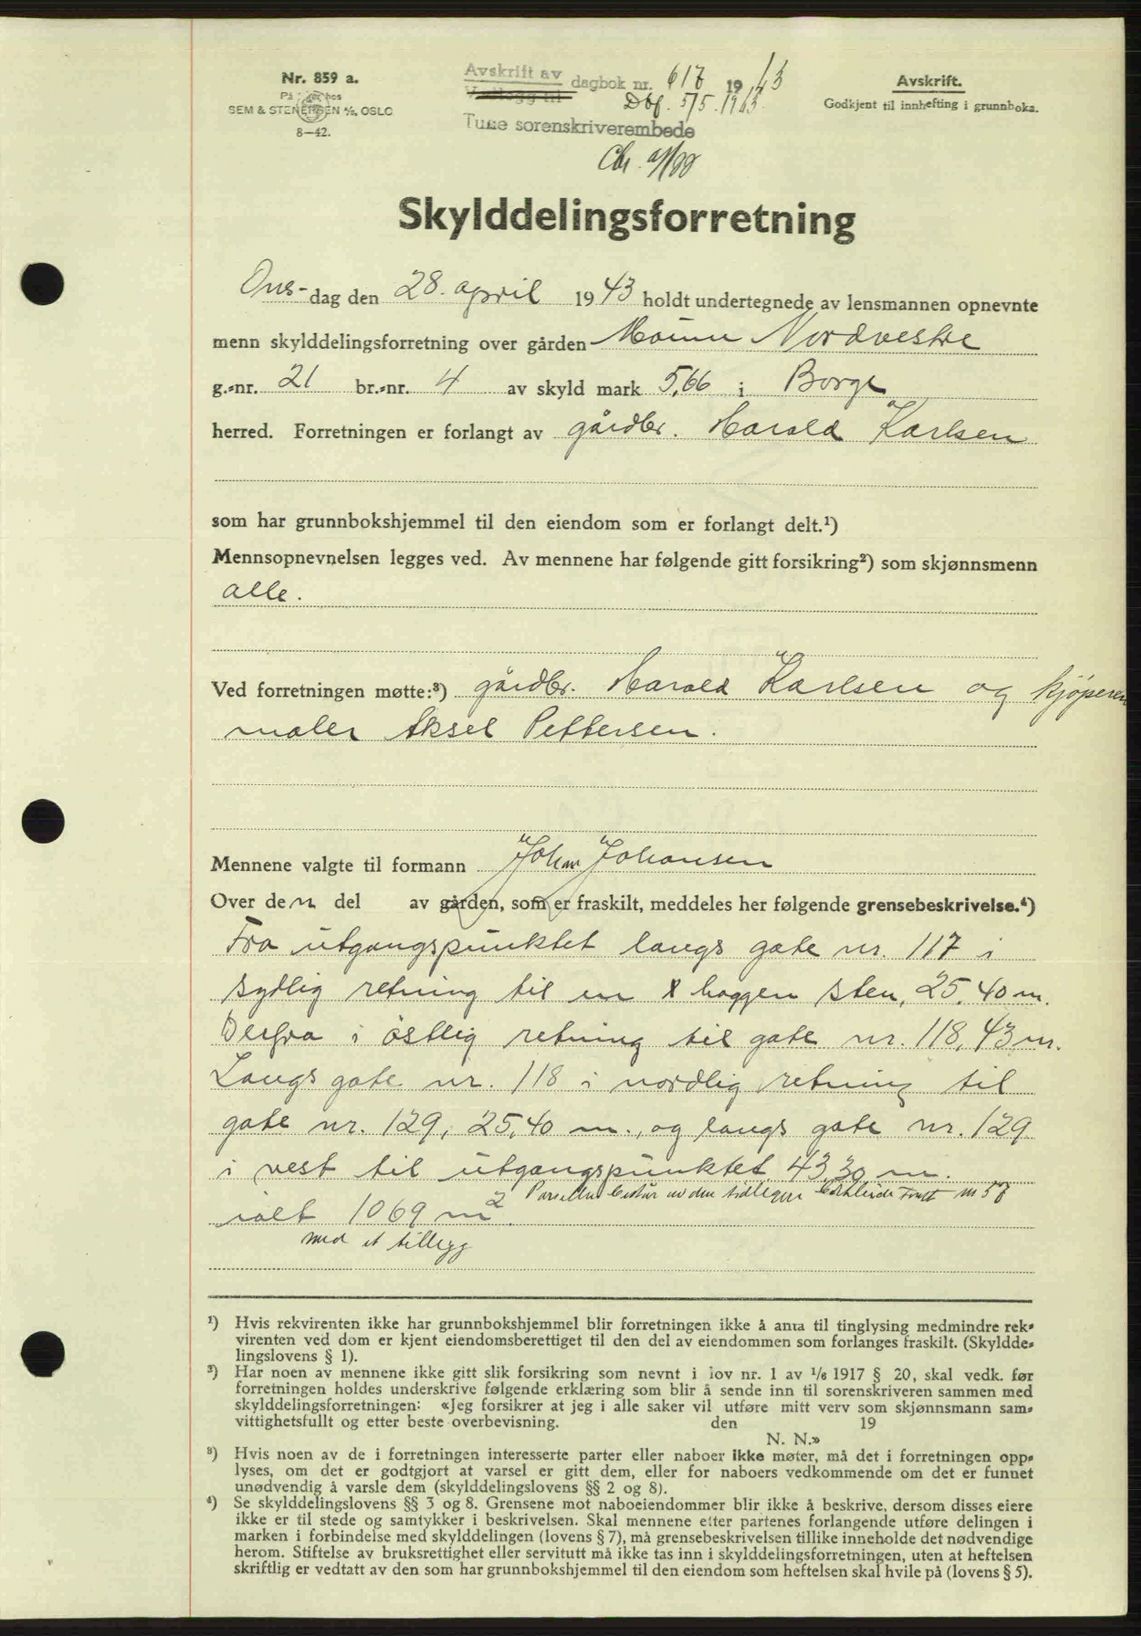 Nr. 859 a.
SEM & STENERSEN A/S, OSLO
8—42.
Avskrift av dagbok nr. 617 1943
Dbf. 5/5. 1943.
Tune sorenskriverembede
Avskrift.
Godkjent til innhefting i grunnboka.
Skylddelingsforretning
Ons-dag den 28. april 1943 holdt undertegnede av lensmannen opnevnte
menn skylddelingsforretning over gården Moum Nordvestre
g.-nr. 21 br.-nr. 4 av skyld mark 5,66 i Borge
herred. Forretningen er forlangt av gårdbr. Harald Karlsen
som har grunnbokshjemmel til den eiendom som er forlangt delt.¹)
Mennsopnevnelsen legges ved. Av mennene har følgende gitt forsikring²) som skjønnsmenn
alle.
Ved forretningen møtte:³) gårdbr. Harald Karlsen og kjøperen
maler Aksel Pettersen.
Mennene valgte til formann Johan Johansen
Over den del av gården, som er fraskilt, meddeles her følgende grensebeskrivelse.⁴)
Fra utgangspunktet langs gate nr. 117 i
sydlig retning til en hoggen sten, 25,40 m.
Derfra i östlig retning til gate nr. 118, 43 m.
Langs gate nr. 118 i nordlig retning til
gate nr. 129, 25,40 m., og langs gate nr. 129
i vest til utgangspunktet 43,30 m.
Parsellen består av den tidligere tomt nr 58
ialt 1069 m².
med et tillegg
¹) Hvis rekvirenten ikke har grunnbokshjemmel blir forretningen ikke å anta til tinglysing medmindre rek-
virenten ved dom er kjent eiendomsberettiget til den del av eiendommen som forlanges fraskilt. (Skyldde-
lingslovens § 1).
²) Har noen av mennene ikke gitt slik forsikring som nevnt i lov nr. 1 av 1/6 1917 § 20, skal vedk. før
forretningen holdes underskrive følgende erklæring som blir å sende inn til sorenskriveren sammen med
skylddelingsforretningen: «Jeg forsikrer at jeg i alle saker vil utføre mitt verv som skjønnsmann sam-
vittighetsfullt og etter beste overbevisning. den 19
N. N.»
³) Hvis noen av de i forretningen interesserte parter eller naboer ikke møter, må det i forretningen opp-
lyses, om det er godtgjort at varsel er gitt dem, eller for naboers vedkommende om det er funnet
unødvendig å varsle dem (skylddelingslovens §§ 2 og 8).
⁴) Se skylddelingslovens §§ 3 og 8. Grensene mot naboeiendommer blir ikke å beskrive, dersom disses eiere
ikke er til stede og samtykker i beskrivelsen. Skal mennene etter partenes forlangende utføre delingen i
marken i forbindelse med skylddelingen (lovens § 7), må grensebeskrivelsen tillike inneholde det nødvendige
herom. Stiftelse av bruksrettighet eller servitutt må ikke tas inn i skylddelingsforretningen, uten at heftelsen
skriftlig er vedtatt av den som har grunnbokshjemmel til den eiendom som heftelsen skal hvile på (lovens § 5).